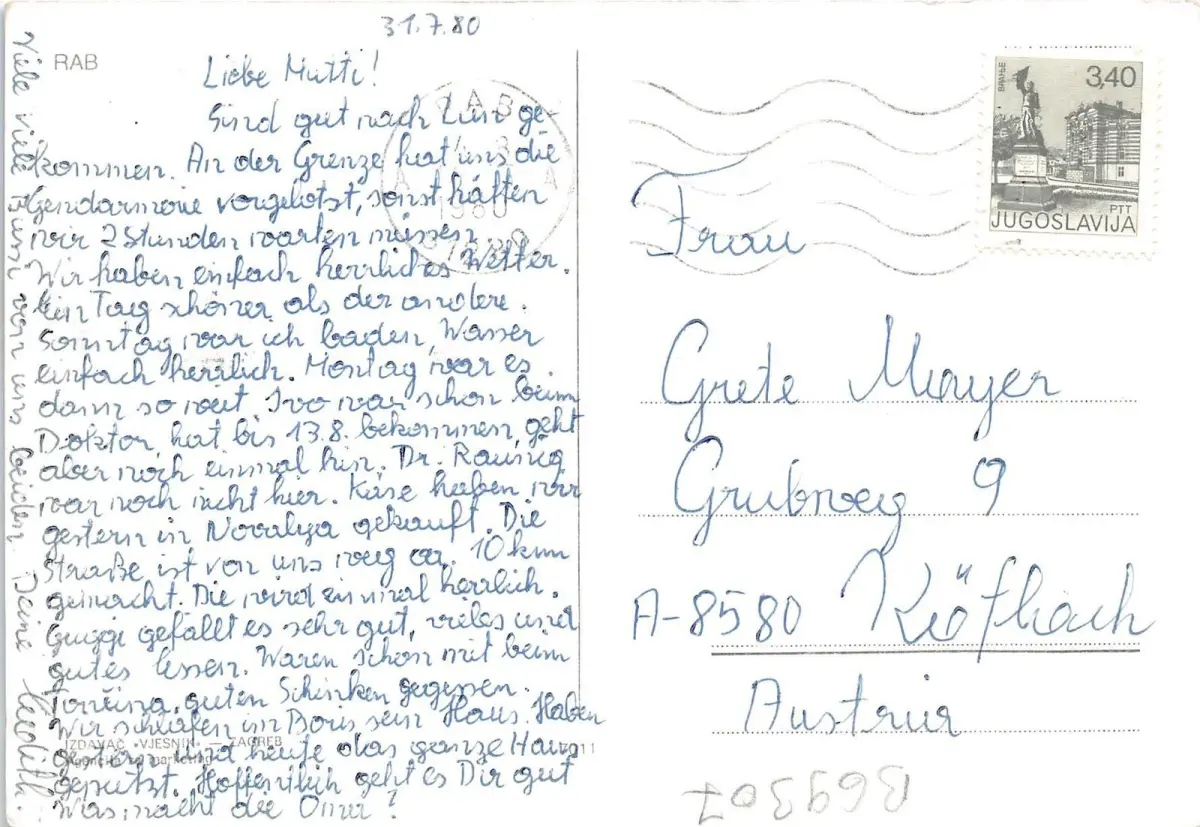 31.7.80
RAB
Liebe Mutti!
Sind gut nach Lun ge-
kommen. An der Grenze hat uns die
Gendarmerie vorgelotst, sonst hätten
wir 2 Stunden warten müssen
Wir haben einfach herrliches Wetter.
Ein Tag schöner als der andere.
Sonntag war ich baden, Wasser
einfach herrlich. Montag war es
dann so weit. Ivo war schon beim
Doktor, hat bis 13.8. bekommen, geht
aber noch einmal hin. Dr. Rausnig
war noch nicht hier. Käse haben wir
gestern in Novalja gekauft. Die
Straße ist von uns weg ca. 10 km
gemacht. Die wird einmal herrlich.
Guggi gefällt es sehr gut, vieles und
gutes Essen. Waren schon mit beim
guten Schinken gegessen.
Wir schlafen in Boris sein Haus. Haben
gestern und heute das ganze Haus
geputzt. Hoffentlich geht es Dir gut
Was macht die Oma?
Viele viele Bussi von uns beiden Deine Judith.
IZDAVAČ «VJESNIK» — ZAGREB
Agencija za marketing
RAB
1980
ВРАЊЕ
3,40
PTT
JUGOSLAVIJA
Frau
Grete Mayer
Grubweg 9
A-8580 Köflach
Austria
B69307